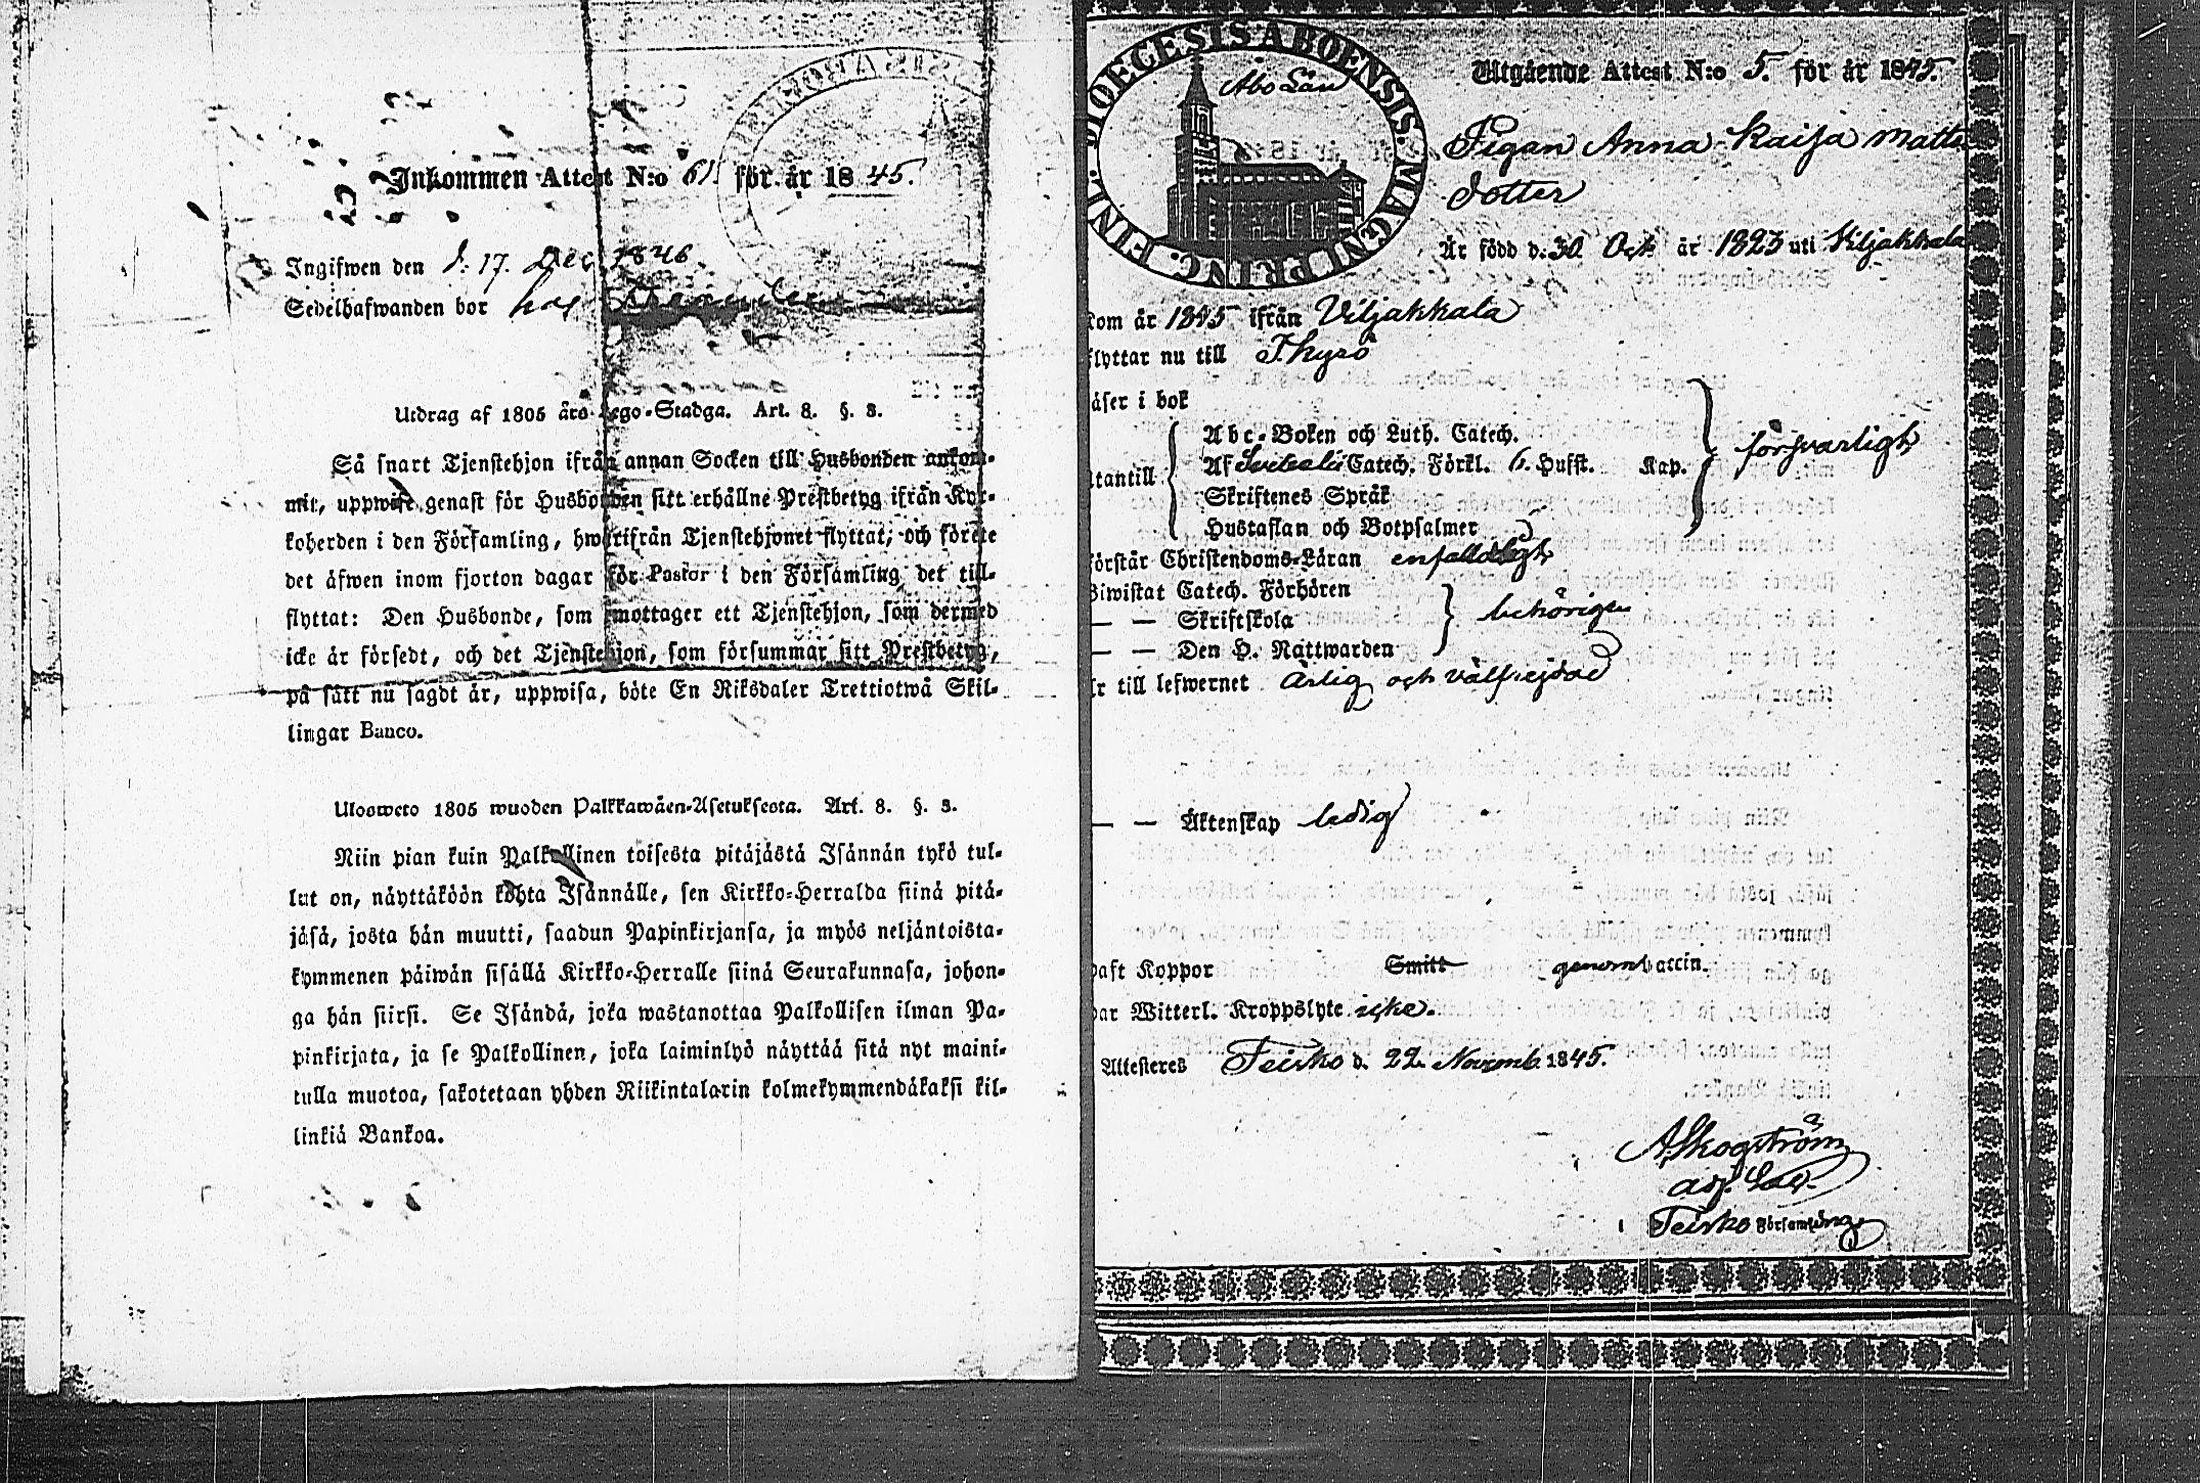 Inkommen Attest N:o 61. för år 1845.
Ingifwen den d. 17. Dec. 1846.
Sedelhafwanden bor hos
Utdrag af 1805 års Lego-Stadga. Art. 8. §. 3.
Så snart Tjenstehjon ifrån annan Socken till Husbonden ankom-
mit, uppwise genast för Husbonden sitt erhållne Prestbetyg ifrån Kyr-
koherden i den Församling, hwarifrån Tjenstehjonet flyttat, och förete
det äfwen inom fjorton dagar för Pastor i den Församling det till-
flyttat: Den Husbonde, som emottager ett Tjenstehjon, som dermed
icke är försedt, och det Tjenstehjon, som försummar sitt Prestbetyg,
på sätt nu sagdt är, uppwisa, böte En Riksdaler Trettiotwå Skil-
lingar Banco.
Ulosweto 1805 wuoden Palkkawäen-Asetuksesta. Art. 8. §. 3.
Niin pian kuin Palkollinen toisesta pitäjästä Isännän tykö tul-
lut on, näyttäköön kohta Isännälle, sen Kirkko-Herralda siinä pitä-
jäsä, josta hän muutti, saadun Papinkirjansa, ja myös neljäntoista-
kymmenen päiwän sisällä Kirkko-Herralle siinä Seurakunnasa, johon-
ga hän siirsi. Se Isändä, joka wastanottaa Palkollisen ilman Pa-
pinkirjata, ja se Palkollinen, joka laiminlyö näyttää sitä nyt maini-
tulla muotoa, sakotetaan yhden Riikintalarin kolmekymmendäkaksi kil-
linkiä Bankoa.
FINL. DIOECESIS ABOENSIS MAGNI PRINC.
Åbo Län
Utgående Attest N:o 5. för år 1845.
Pigan Anna Kaisa Matts
dotter
Är född d. 30 Oct. år 1823 uti Viljakkala
kom år 1845 ifrån Viljakkala
flyttar nu till T.kyrö
läser i bok
Abc-Boken och Luth. Catech.
utantill Af Svebelii Catech. Förkl. 6. Hufst. Kap. försvarligt
Skriftenes Språk
Hustaflan och Botpsalmer
förstår Christendoms-Läran enfaldeligt
Biwistat Catech. Förhören
— — Skriftskola behörigen
— — Den H. Nattwarden
Är till lefwernet ärlig och välfrejdad
— — Äktenskap ledig
haft Koppor Smitt genom vaccin.
har Witterl. Kroppslyte icke.
Attesteres Teisko d. 22 Novemb. 1845.
A Skogström
adj. Sac.
i Teisko Församling